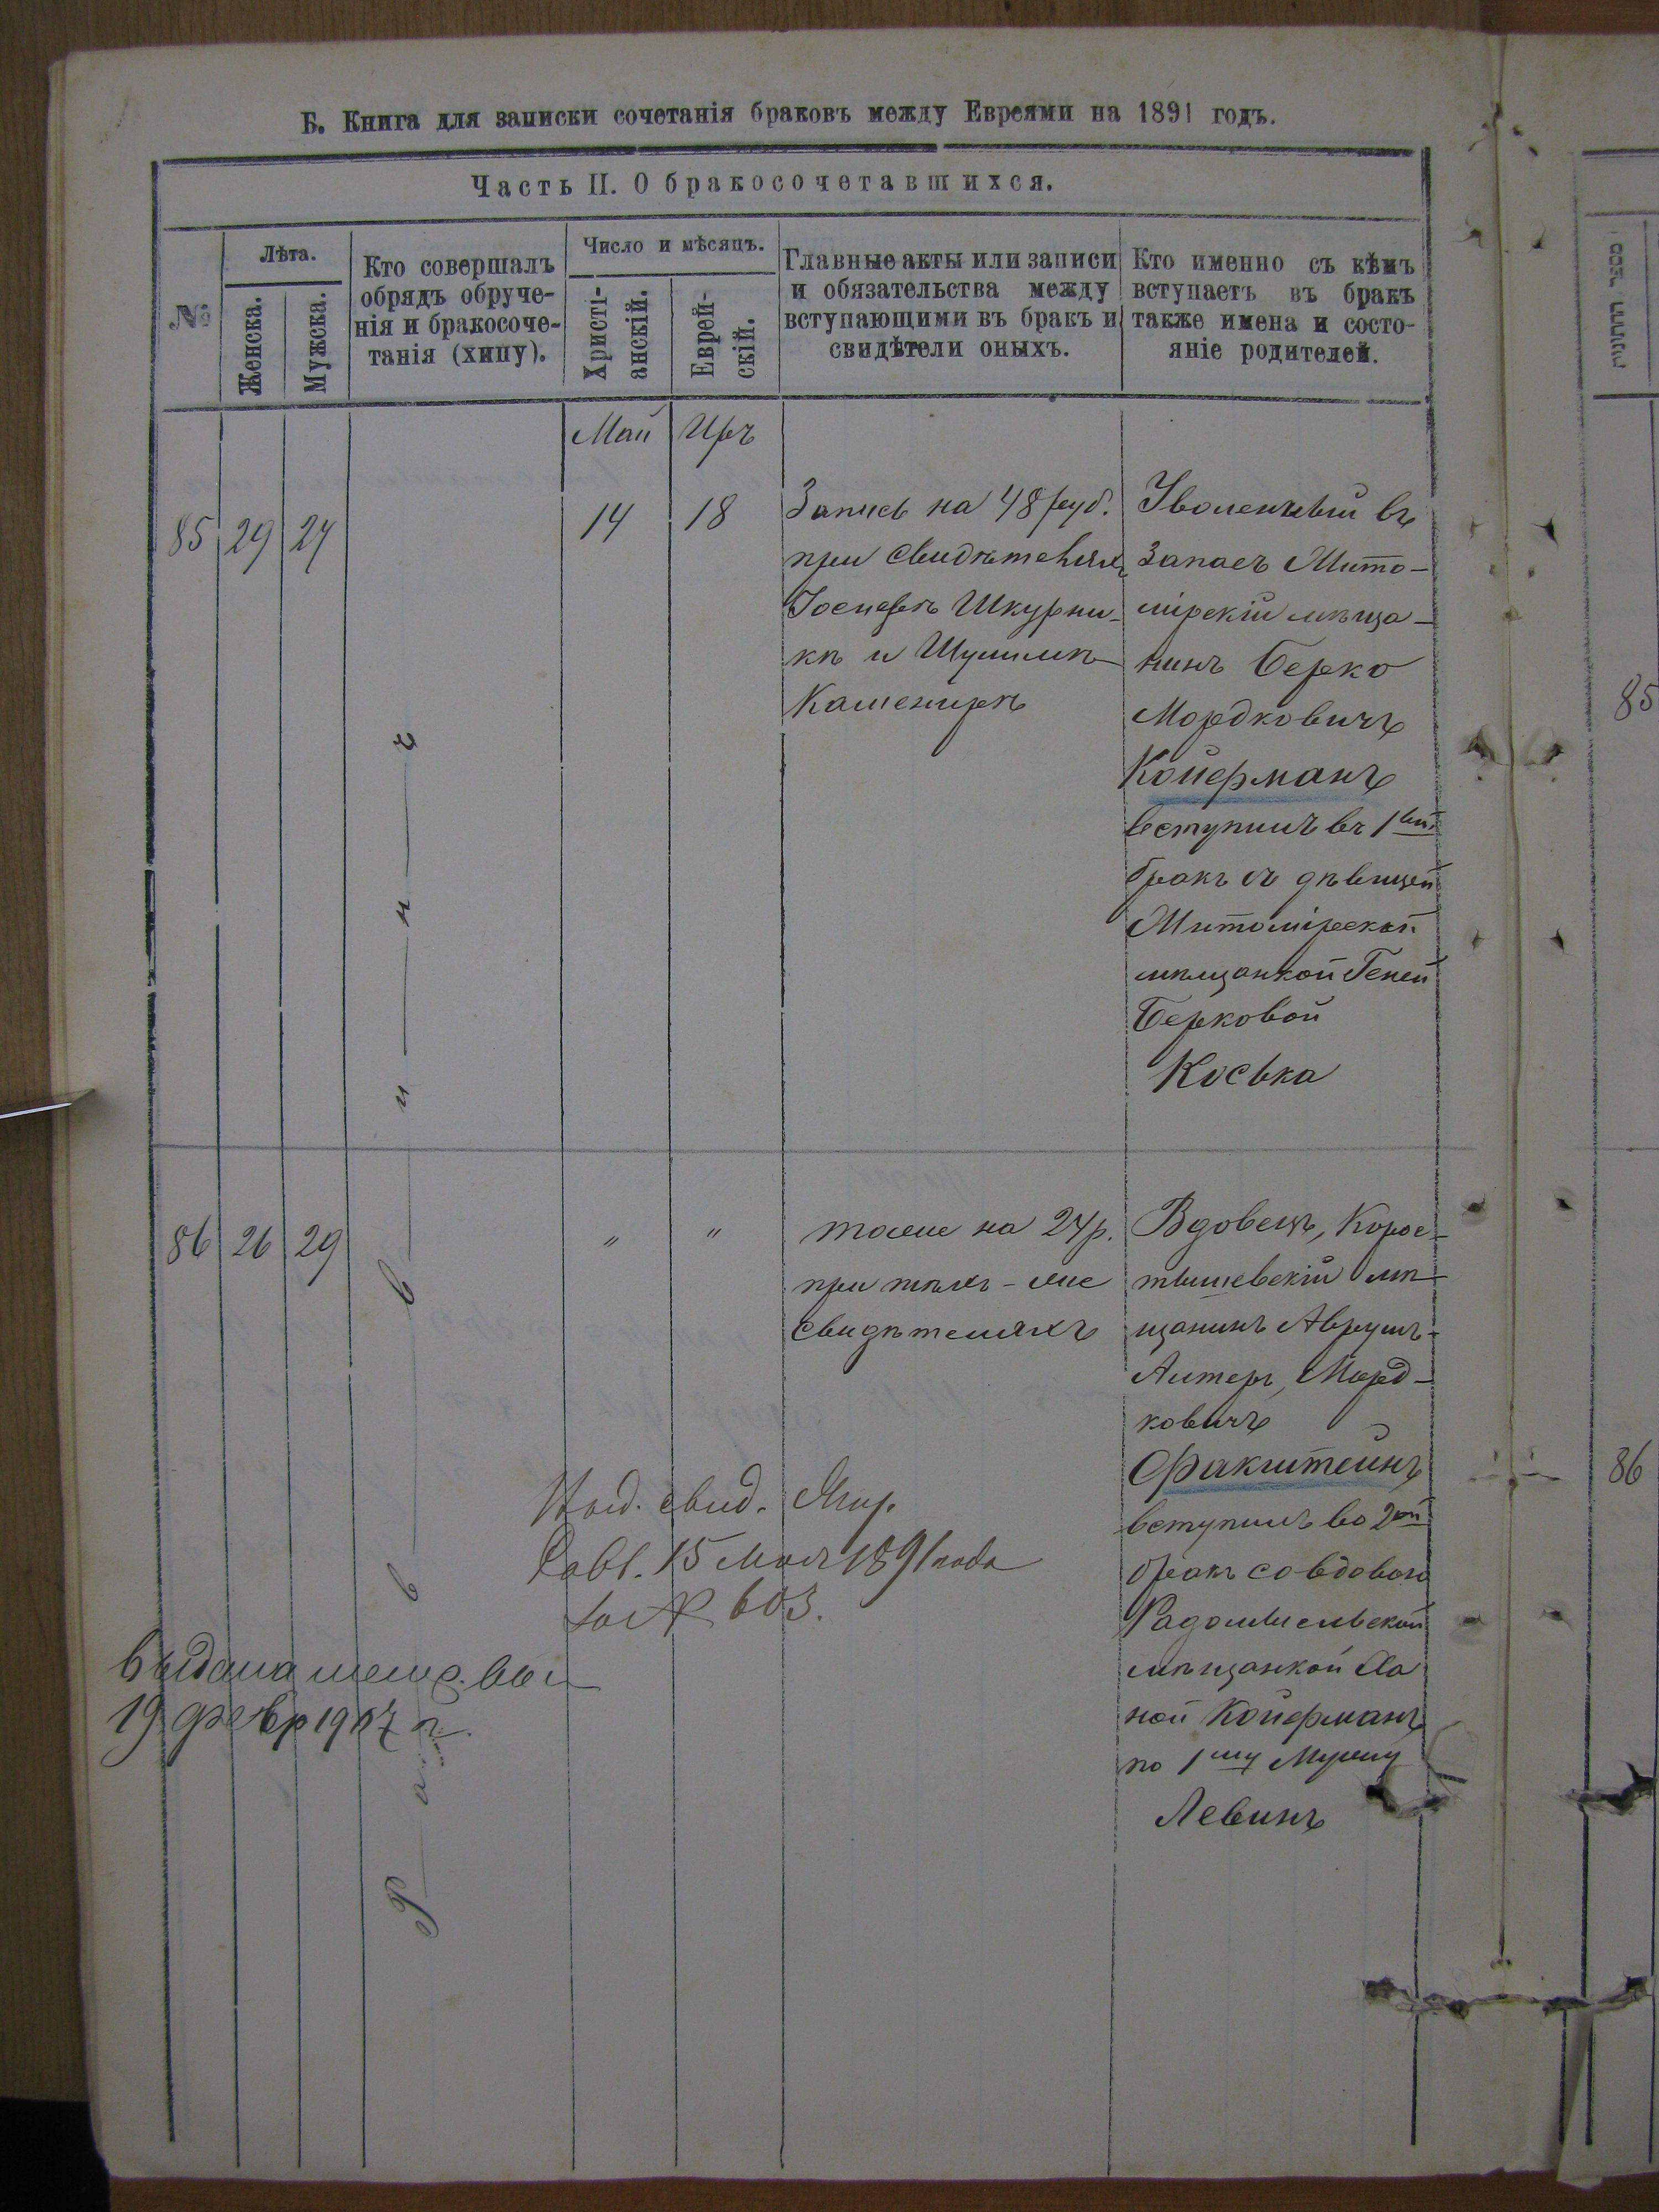 Б. Книга для записки сочетанія браковъ между Евреями на 1891 годъ.
Часть II. О бракосочетавшихся.
№
Лѣта.
Женска.
Мужска.
Кто совершалъ
обрядъ обруче-
нія и бракосоче-
танія (хипу).
Число и мѣсяцъ.
Христі-
анскій.
Еврей-
скій.
Главные акты или записи
и обязательства между
вступающими въ бракъ и
свидѣтели оныхъ.
Кто именно съ кѣмъ
вступаетъ въ бракъ
также имена и состо-
яніе родителей.
Май Иръ
85 29 24
14 18
Запись на 48 руб.
при свидѣтеляхъ
Іосифѣ Шкурни-
кѣ и Шулимѣ
Каменирѣ
Уволенный въ
запасъ Жито-
мірскій мѣща-
нинъ Берко
Мордковичъ
Койфманъ
вступилъ въ 1вый
бракъ съ дѣвицей
Житомірской
мѣщанкой Геней
Берковой
Коська
Р а в в и н ъ
86 26 29
" "
тоже на 24 р.
при тѣхъ-же
свидѣтеляхъ
Вдовецъ, Корос-
тышевскій мѣ-
щанинъ Аврумъ-
Алтеръ Морд-
ковичъ
Факштейнъ
вступилъ во 2ой
бракъ со вдовою
Радомысльской
мѣщанкой Ха
ной Койфманъ
по 1му Мужу
Левинъ
Выд. свид.
15 мая 1891 года
за № 603.
Выдана
19 февр 1907 г.
85
86